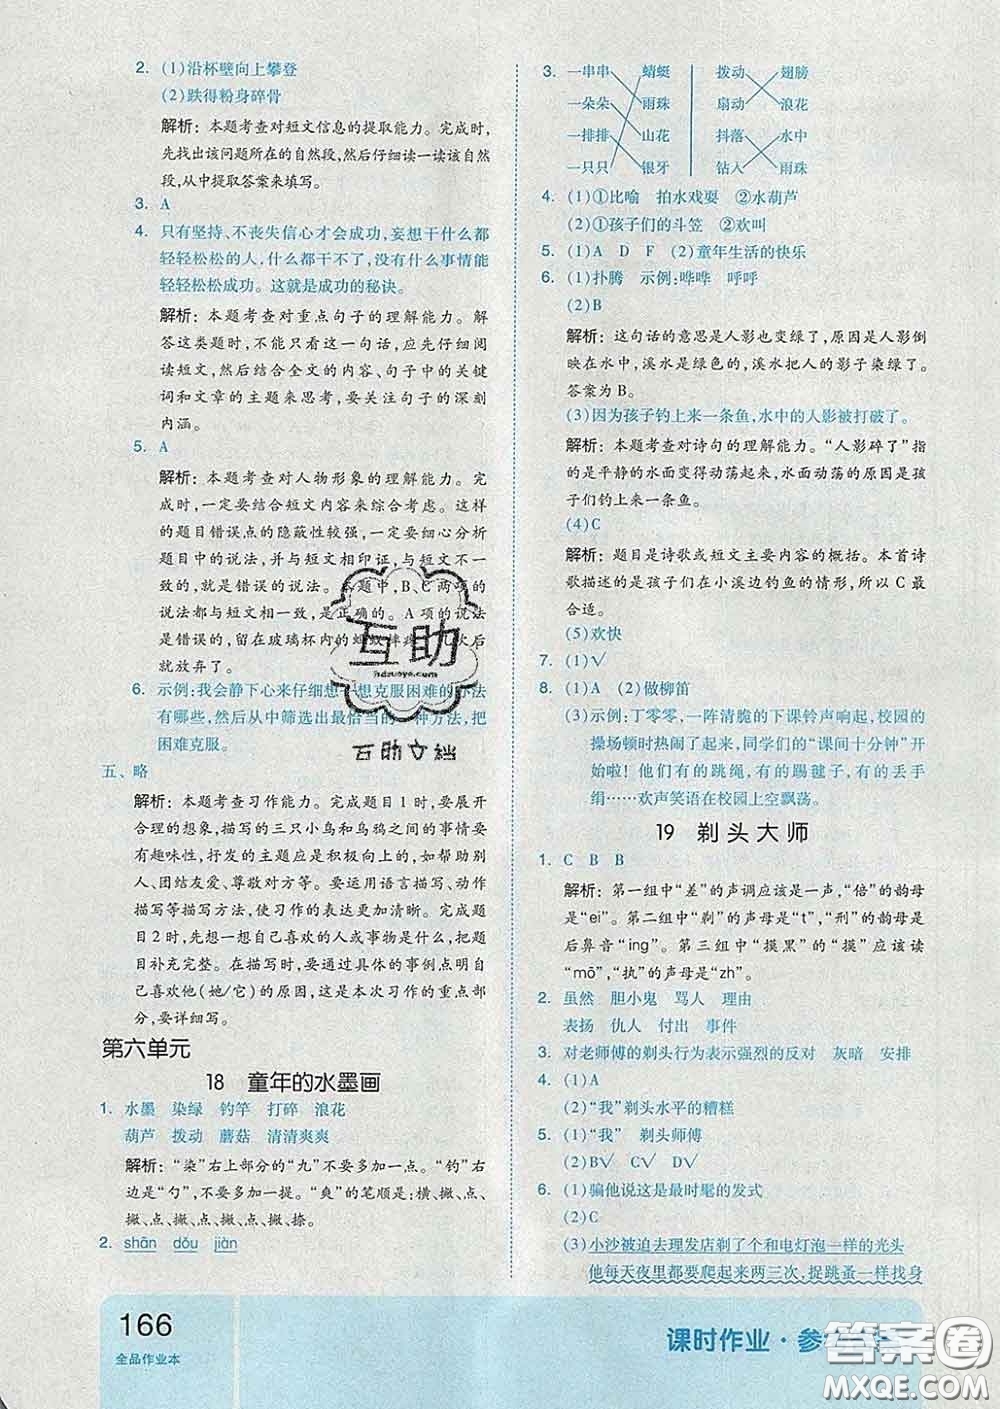 2. (1)沿杯壁向上攀登
(2)跌得粉身碎骨
解析：本题考查对短文信息的提取能力。完成时,
先找出该问题所在的自然段,然后仔细读一读该自然
段,从中提取答案来填写。
3. A
4. 只有坚持、不丧失信心才会成功,妄想干什么都
轻轻松松的人,什么都干不了,没有什么事情能
轻轻松松成功。这就是成功的秘诀。
解析：本题考查对重点句子的理解能力。解
答这类题时,不能只看这一句话,应先仔细阅
读短文,然后结合全文的内容、句子中的关键
词和文章的主题来思考,要关注句子的深刻
内涵。
5. A
解析：本题考查对人物形象的理解能力。完
成时,一定要结合短文内容来综合考虑。这样的
的题目错误点的隐蔽性较强,一定要细心分析
题目中的说法,并与短文相印证,与短文不一
致的,就是错误的说法。本题中,B、C两项的
说法都与短文相一致,是正确的。A项的说法
是错误的,留在玻璃杯内的蚂蚁摔疼几次后
就放弃了。
6. 示例:我会静下心来仔细想一想克服困难的办法
有哪些,然后从中筛选出最恰当的一种方法,把
困难克服。
五、略
解析：本题考查习作能力。完成题目1时,要展开
合理的想象,描写的三只小鸟和乌鸦的事情要
有趣味性,抒发的主题应是积极向上的,如帮助
人、团结友爱、尊敬对方等。要运用语言描写、动
作描写等描写方法,使习作的表达更加清晰。完成
题目2时,先想一想自己喜欢的人或事物是什么,把
题目补充完整。在描写时,要通过具体的事例点明自
己喜欢他(她/它)的原因,这是本次习作的重点部
分,要详细写。
第六单元
18 童年的水墨画
1. 水墨 染绿 钓竿 打碎 浪花
葫芦 拨动 蘑菇 清清爽爽
解析：“染”右上部分的“九”不要多加一点。“钓”右
边是“勺”,不要多加一提。“爽”的笔顺是:横、撇、点、
撇、点、撇、点、撇、点、撇、捺。
2. shān dǒu jiàn
3. 一串串 蜻蜓 拨动 翅膀
一朵朵 雨珠 扇动 浪花
一排排 山花 抖落 水中
一只只 银牙 钻入 雨珠
4. (1)①比喻 拍水戏耍 ②水葫芦
(2)①孩子们的斗笠 ②欢叫
5. (1)A D F (2)童年生活的快乐
6. (1)扑腾 示例:哗哗 呼呼
(2)B
解析：这句话的意思是人影也变绿了,原因是人影倒
映在水中,溪水是绿色的,溪水把人的影子染绿了。
答案为B。
(3)因为孩子钓上来一条鱼,水中的人影被打破了。
解析：本题考查对诗句的理解能力。“人影碎了”指
的是平静的水面变得动荡起来,水面动荡的原因是孩
子们钓上来一条鱼。
(4)C
解析：题目是诗歌或短文主要内容的概括。本首诗
歌描述的是孩子们在小溪边钓鱼的情形,所以C最
合适。
(5)欢快
7. (1)√
8. (1)A (2)做柳笛
(3)示例:丁零零,一阵清脆的下课铃声响起,校园的
操场顿时热闹了起来,同学们的“课间十分钟”开
始啦！他们有的跳绳,有的踢毽子,有的丢手
绢……欢声笑语在校园上空飘荡。
19 剃头大师
1. C B B
解析：第一组中“差”的声调应该是一声,“倍”的韵母
是“ei”。第二组中“剃”的声母是“t”,“刑”的韵母是
后鼻音“ing”。第三组中“摸黑”的“摸”应该读
“mō”,“执”的声母是“zh”。
2. 虽然 胆小鬼 骂人 理由
表扬 仇人 付出 事件
3. 对老师傅的剃头行为表示强烈的反对 灰暗 安排
4. (1)A
(2)“我”剃头水平的糟糕
5. (1)“我” 剃头师傅
(2)B√ C√ D√
6. (1)骗他说这是最时髦的发式
(2)C
(3)小沙被迫去理发店剃了个和电灯泡一样的光头
他每天夜里都要爬起来两三次,捉跳蚤一样找身
互助
hdzuoye.com
互助文档
166
全品作业本
课时作业·参考
答案圈
MXQE.COM